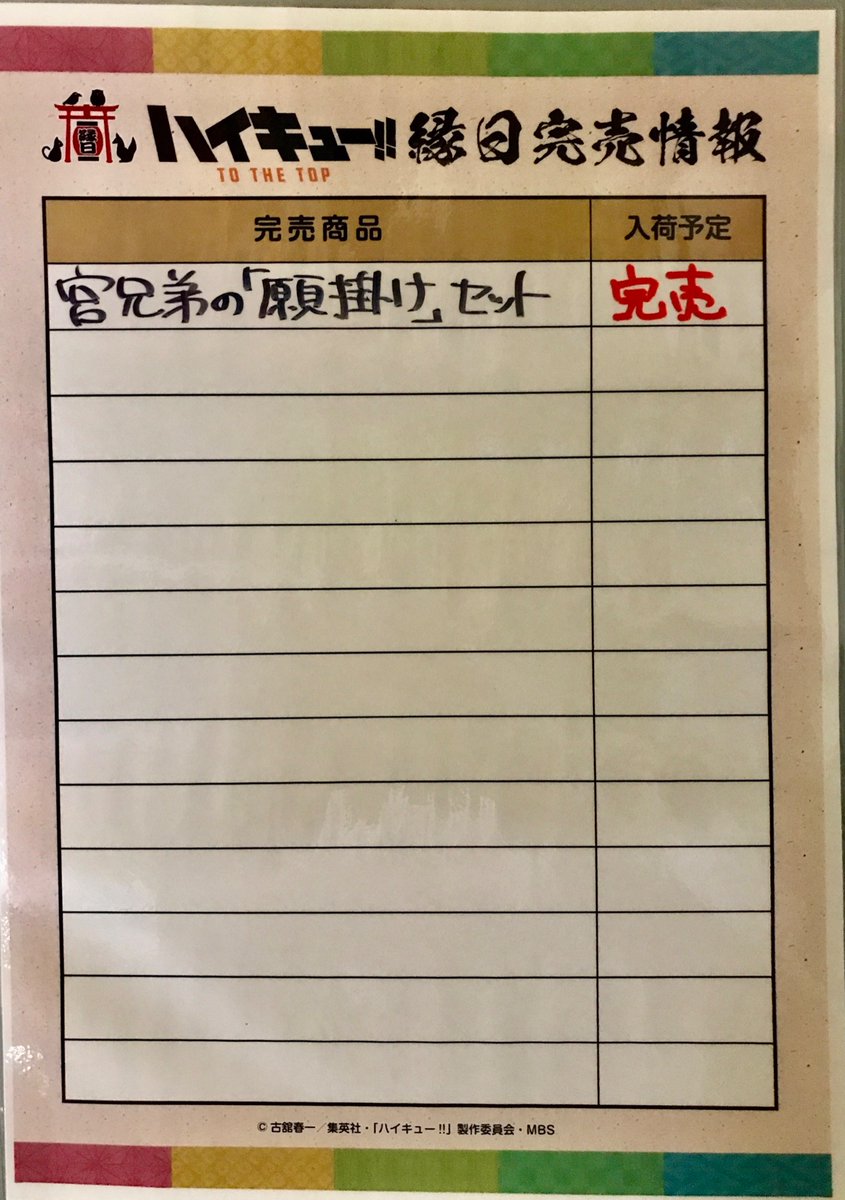 ハイキュー!! 縁日完売情報
TO THE TOP
完売商品 入荷予定
宮兄弟の「願掛け」セット 完売
©古舘春一／集英社・「ハイキュー!!」製作委員会・MBS